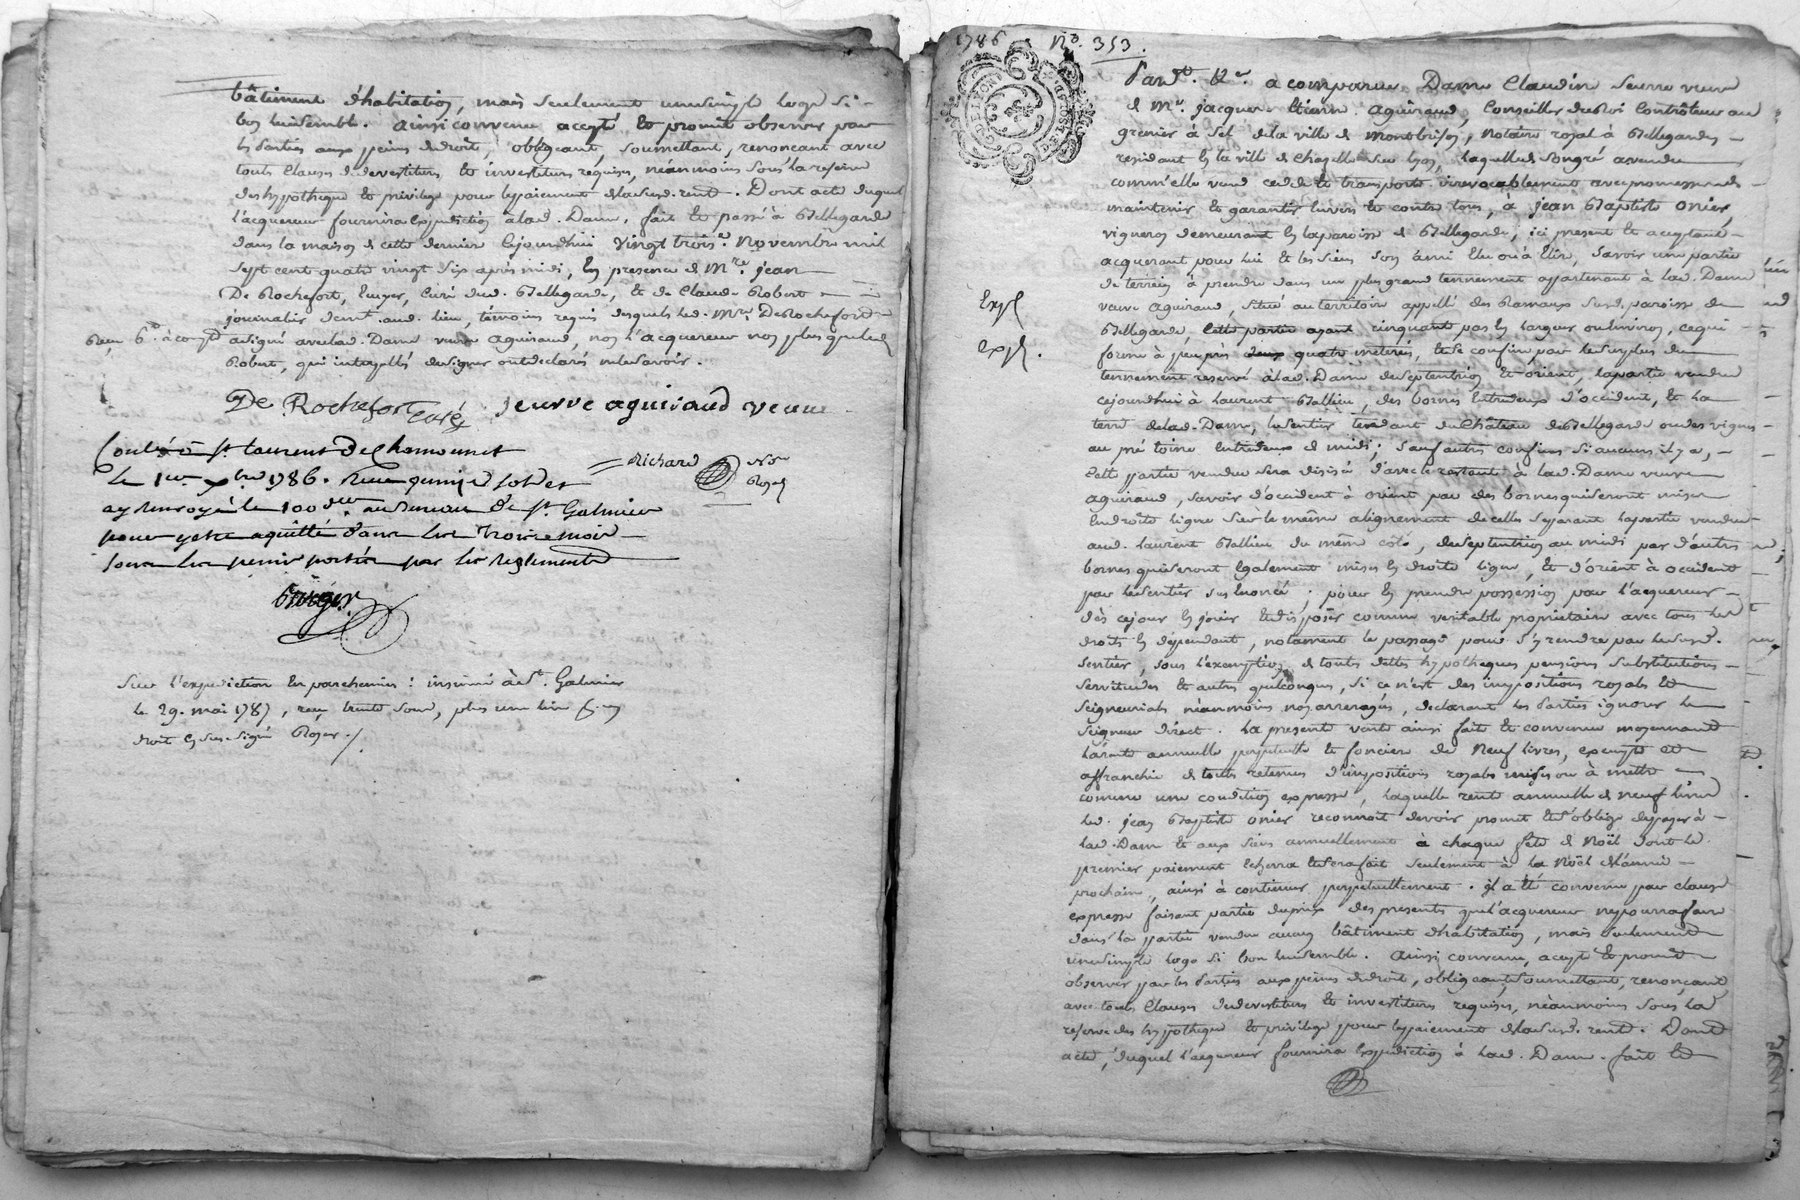 bâtiment d'habitation, mais seulement une simple loge si
bon lui semble. ainsi convenu accepté et promit observer par
les Parties aux peines de droit, obligeant, soumettant, renonçant avec
touts Clauses de devestiture et investiture requises, néanmoins sous la reserve
des hypotheque et privilege pour le paiement de lad. rente. Dont acte duquel
l'acquereur fournira expedition à lad. Dame, fait et passé à Bellegarde
dans la maison de cette derniere cejourdhui vingt trois.e Novembre mil
sept cent quatre vingt six après midi, En presence de Mre. jean
De Rochefort, Ecuyer, Curé dud. Bellegarde, et de Claude Robert
journalier demt. aud. lieu, temoins requis desquels led. Mre. De Rochefort
a signé avec lad. Dame veuve aguiraud, non l'acquereur non plus que led.
Robert, qui interpellés de signer ont declaré ne le savoir.
De Rochefort Curé jeurre aguiraud veuve
Conlé à St. Laurent de Chamousset
Richard Nre Royal
Le 1er xbre 1786. Reçu quinze sols et
ay renvoyé le 100e au Bureau de St. Galmier
pour y etre aquitté dans les trois mois
sous les peines portées par les Reglements
Sur l'expedition en parchemin : insinué à St. Galmier
le 29. mai 1787, reçu trente sous, plus une livre
droit Royer
1786 No. 353.
Pardt. Nre. a comparue Dame Claudine jeurre veuve
de Mre. jacques Etienne aguiraud, Conseiller du Roi Contrôleur au
grenier à sel de la ville de Montbrison, Notaire royal à Bellegarde,
residant en la ville de Chazelle sur Lyon, laquelle de son gré a vendu
comm'elle vend cede et transporte irrevocablement avec promesse de
maintenir et garantir envers et contre tous, à jean Baptiste Onier,
vigneron demeurant en la paroisse de Bellegarde, ici present et acceptant
acquerant pour lui et les siens son ami Elu ou à Elire, savoir une partie
de terrein à prendre dans un plus grand tennement appartenant à lad. Dame
veuve aguiraud, situé au territoire appellé des Rameaux susd. paroisse de
Exp.
Bellegarde, cette partie ayant cinquante pas en largeur ou environ, ce qui
Exp.
forme à peu près deux quatre meterées, et se confine par le surplus du
tennement reservé à lad. Dame de septentrion et orient, la partie vendue
cejourdhui à Laurent Ballieu, des bornes entredeux d'occident, et la
terre de lad. Dame, le sentier tendant du Château de Bellegarde ou des vignes
au pré toine entredeux de midi; sauf autres confins si aucuns il y a,
Cette partie vendue sera divisée d'avec le restant à lad. Dame veuve
aguiraud, savoir d'occident à orient par des bornes qui seront mises
en droite ligne sur le même alignement de celles separant la partie vendue
aud. Laurent Ballieu du même coté, de septentrion au midi par d'autres
bornes qui seront egalement mises en droite ligne, et d'orient à occident
par le sentier sus enoncé; pour en prendre possession par l'acquereur
dès ce jour en jouir et disposer comme veritable proprietaire avec tous les
droits en dependant, notament le passage pour s'y rendre par le susd.
sentier, sous l'exemption de touts dettes hypotheques pensions substitutions
servitudes et autres quelconques, si ce n'est des impositions royales et
seigneuriales néanmoins non arreragés, declarant les Parties ignorer le
seigneur direct. La presente vente ainsi faite et convenue moyennant
la rente annuelle perpetuelle et fonciere de Neuf livres, exempte et
affranchie de toute retenue d'impositions royales mises ou à mettre
comme une condition expresse, laquelle rente annuelle de neuf livres
led. jean Baptiste Onier reconnoit devoir promet et s'oblige de payer à
lad. Dame et aux siens annuellement à chaque fête de Noël dont le
premier paiement echerra et se fait seulement à la Noël de l'année
prochaine, ainsi à continuer perpetuellement. Il a été convenu par clause
expresse faisant partie du prix des presentes que l'acquereur ne pourra faire
dans la partie vendue aucun bâtiment d'habitation, mais seulement
une simple loge si bon lui semble. Ainsi convenu, accepté et promit
observer par les Parties aux peines de droit, obligeant, soumettant, renonçant
avec touts Clauses de devestiture et investiture requises, néanmoins sous la
reserve des hypotheque et privilege pour le paiement de la susd. rente. Dont
acte, duquel l'acquereur fournira expedition à lad. Dame. fait et